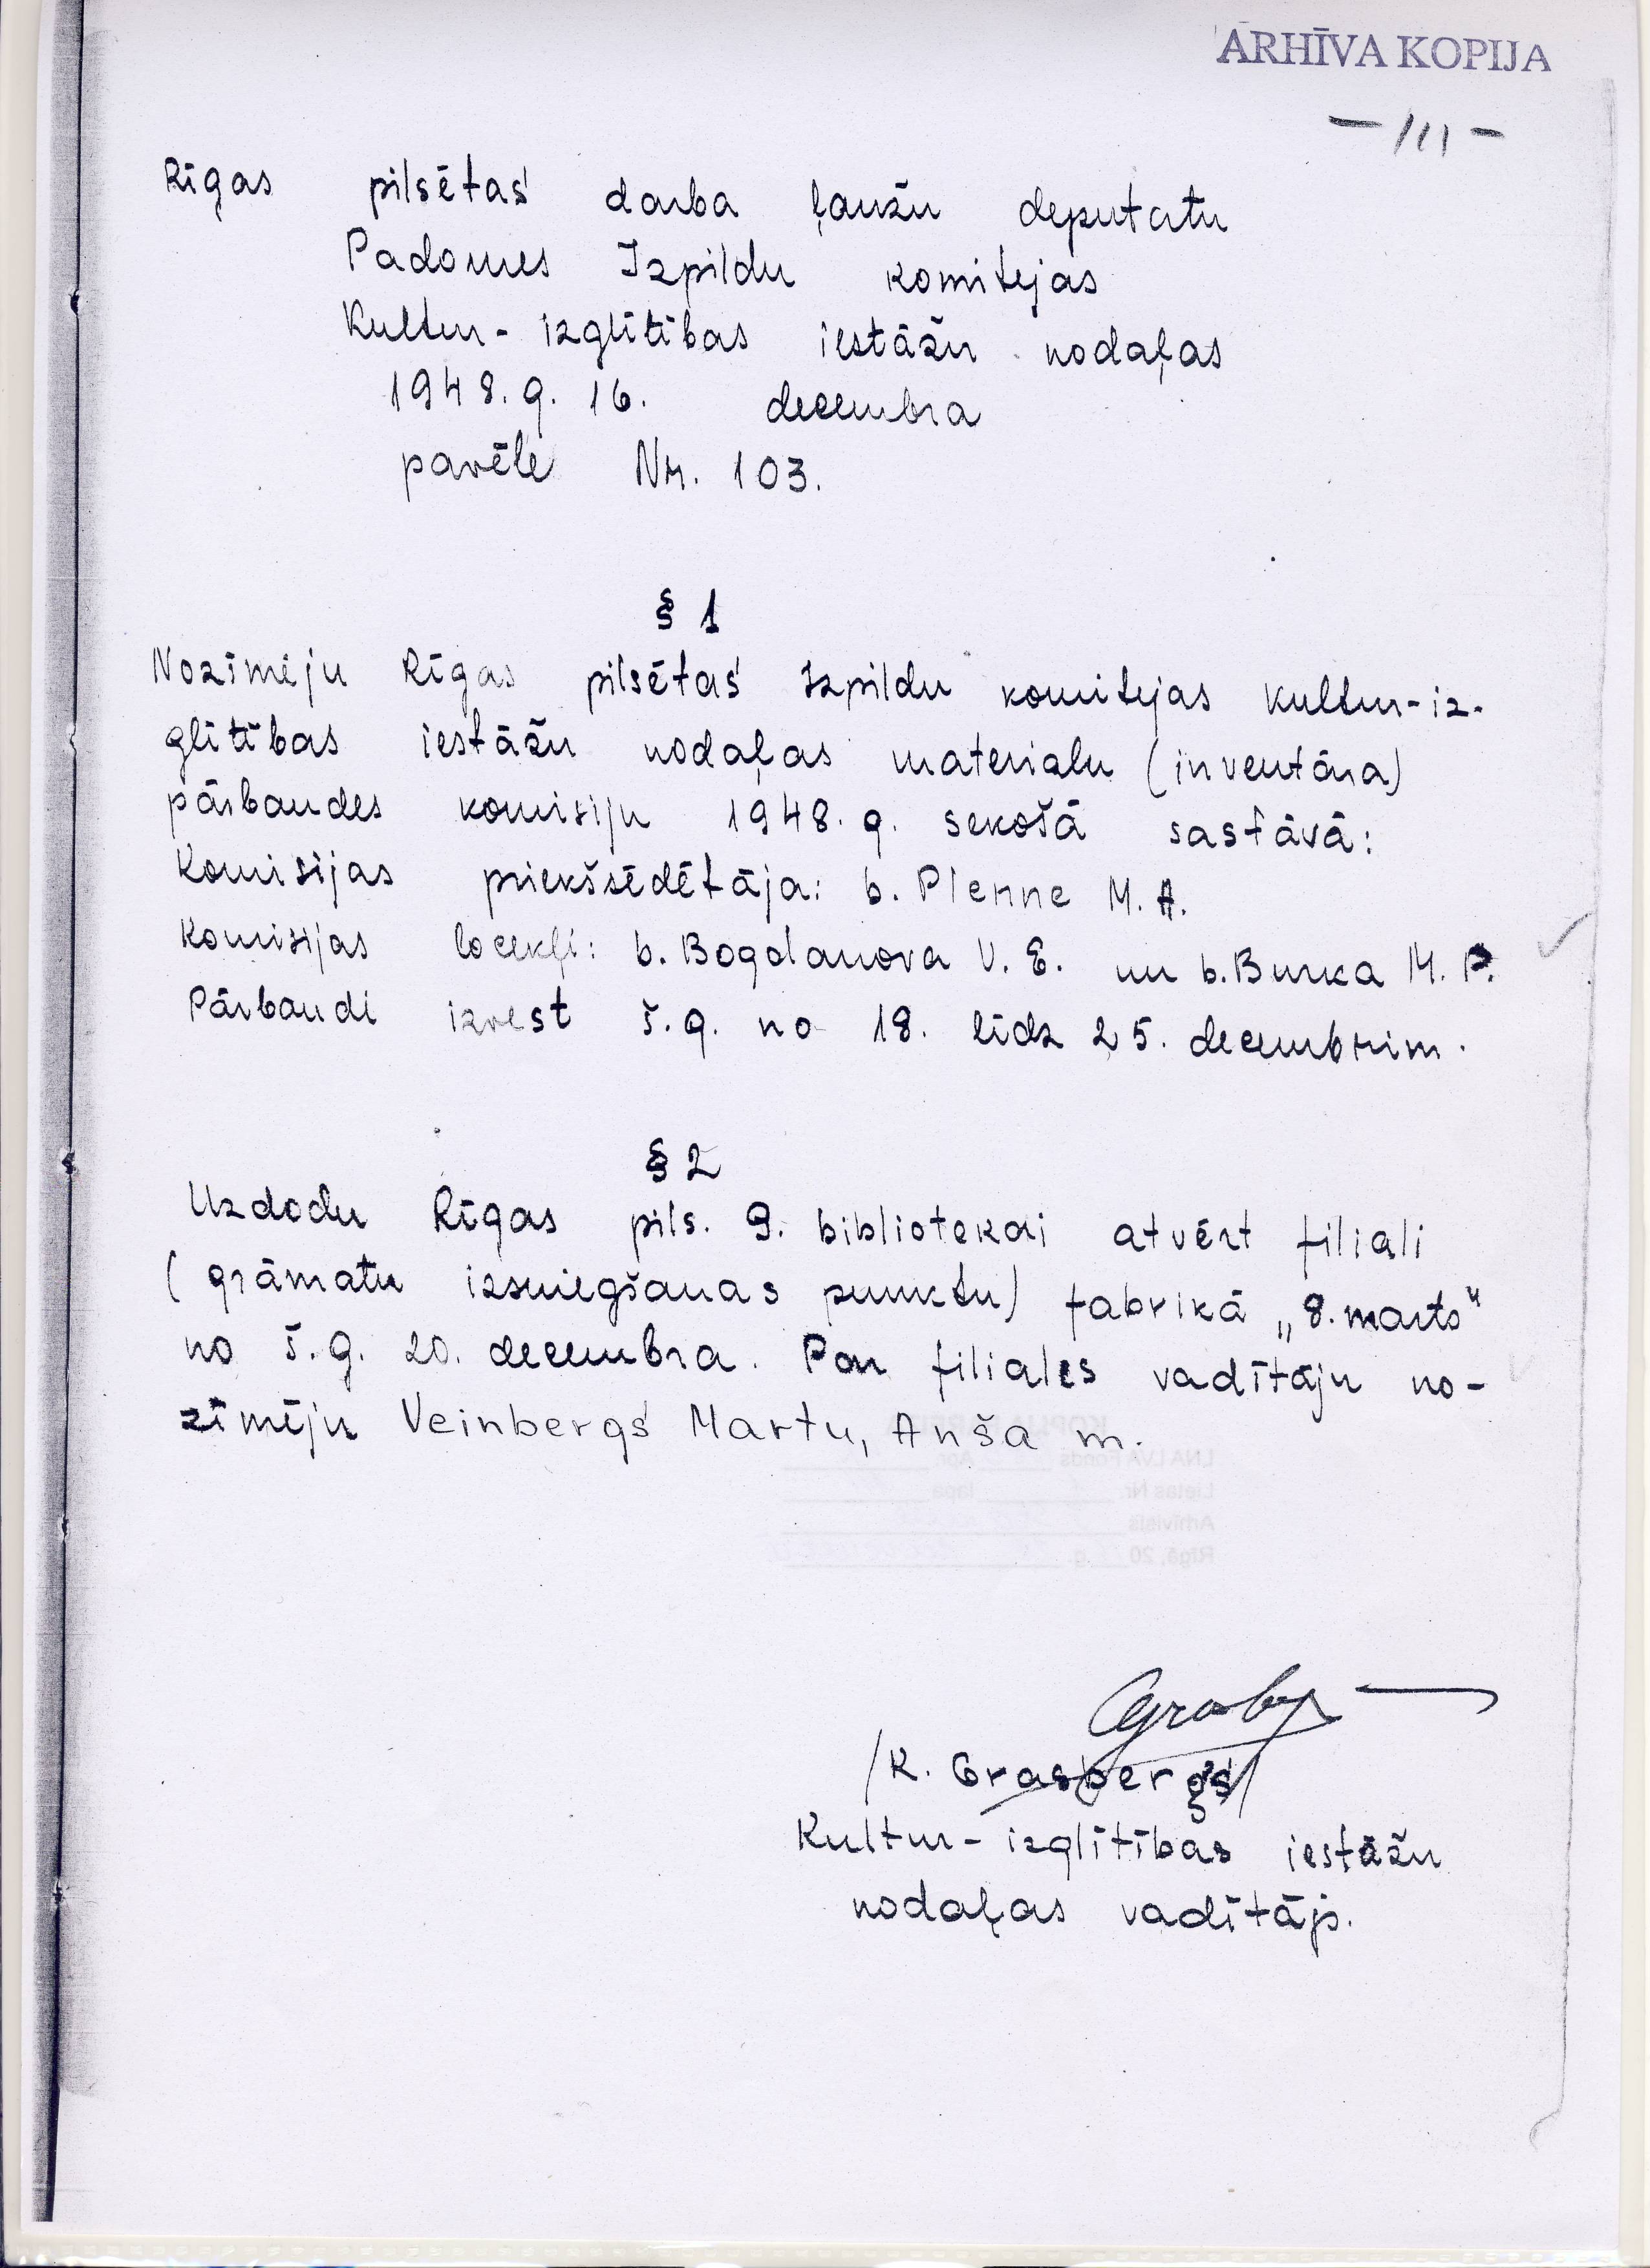 ARHĪVA KOPIJA
- 111 -
Rīgas pilsētas darba ļaužu deputatu
Padomes Izpildu komitejas
Kultur- izglītības iestāžu nodaļas
1948. g. 16. decembra
pavēle Nr. 103.
§ 1
Nozīmēju Rīgas pilsētas Izpildu komitejas Kultur-iz-
glītības iestāžu nodaļas materialu (inventāra)
pārbaudes komisiju 1948. g. sekošā sastāvā:
Komisijas priekšsēdētāja: b. Plenne M. A.
Komisijas locekļi: b. Bogdanova V. E. un b. Burka M. P.
Pārbaudi izvest š.g. no 18. līdz 25. decembrim.
§ 2
Uzdodu Rīgas pils. 9. bibliotekai atvērt filiali
(grāmatu izsniegšanas punktu) fabrikā „8. marts"
no š.g. 20. decembra. Par filiales vadītāju no-
zīmēju Veinbergs Martu, Anša m.
LNA LVA Fonds Apr.
Lietas Nr. lapa
Arhīvists
Rīgā, 20 g.
/K. Grasbergs/
Kultur- izglītības iestāžu
nodaļas vadītājs.